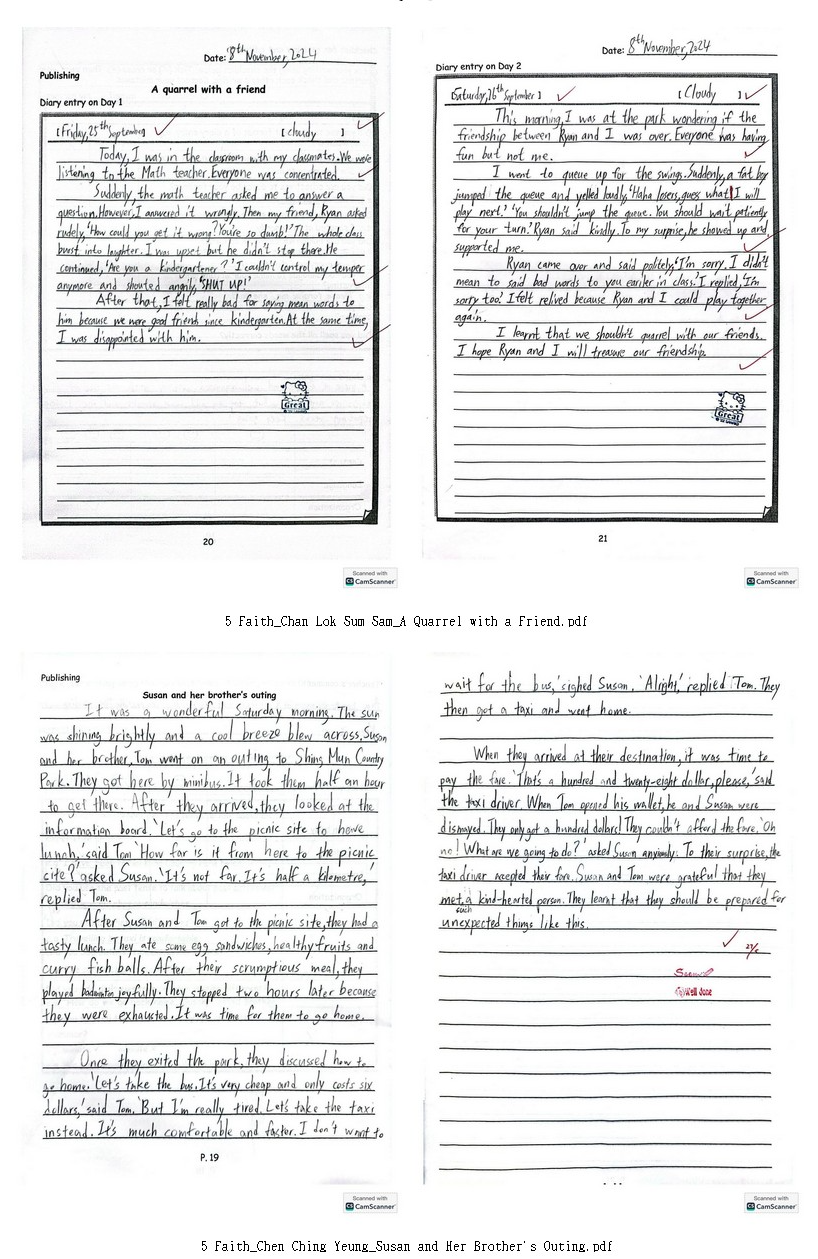 Date: 8th November, 2024
Publishing
A quarrel with a friend
Diary entry on Day 1
[Friday, 25th September] [cloudy ]
Today, I was in the classroom with my classmates. We were
listening to the Math teacher. Everyone was concentrated.
Suddenly, the math teacher asked me to answer a
question. However, I answered it wrongly. Then my friend, Ryan asked
rudely, 'How could you get it wrong? You're so dumb!' The whole class
burst into laughter. I was upset but he didn't stop there. He
continued, 'Are you a kindergartener?' I couldn't control my temper
anymore and shouted angrily, 'SHUT UP!'
After that, I felt really bad for saying mean words to
him because we were good friends since kindergarten. At the same time,
I was disappointed with him.
Great
20
Scanned with
CS CamScanner
Date: 8th November, 2024
Diary entry on Day 2
[Saturday, 26th September] [Cloudy ]
This morning, I was at the park wondering if the
friendship between Ryan and I was over. Everyone was having
fun but not me.
I went to queue up for the swings. Suddenly, a fat boy
jumped the queue and yelled loudly, 'Haha losers, guess what! I will
play next.' 'You shouldn't jump the queue. You should wait patiently
for your turn.' Ryan said kindly. To my surprise, he showed up and
supported me.
Ryan came over and said politely, 'I'm sorry, I didn't
mean to said bad words to you earlier in class.' I replied, 'I'm
sorry too.' I felt relived because Ryan and I could play together
again.
I learnt that we shouldn't quarrel with our friends.
I hope Ryan and I will treasure our friendship.
Great
21
Scanned with
CS CamScanner
5 Faith_Chan Lok Sum Sam_A Quarrel with a Friend.pdf
Publishing
Susan and her brother's outing
It was a wonderful Saturday morning. The sun
was shining brightly and a cool breeze blew across. Susan
and her brother, Tom went on an outing to Shing Mun Country
Park. They got here by minibus. It took them half an hour
to get there. After they arrived, they looked at the
information board. 'Let's go to the picnic site to have
lunch,' said Tom. 'How far is it from here to the picnic
site?' asked Susan. 'It's not far. It's half a kilometre,'
replied Tom.
After Susan and Tom got to the picnic site, they had a
tasty lunch. They ate some egg sandwiches, healthy fruits and
curry fish balls. After their scrumptious meal, they
played badminton joyfully. They stopped two hours later because
they were exhausted. It was time for them to go home.
Once they exited the park, they discussed how to
go home. 'Let's take the bus. It's very cheap and only costs six
dollars,' said Tom. 'But I'm really tired. Let's take the taxi
instead. It's much comfortable and faster. I don't want to
P. 19
Scanned with
CS CamScanner
wait for the bus,' sighed Susan. 'Alright,' replied Tom. They
then got a taxi and went home.
When they arrived at their destination, it was time to
pay the fare. 'That's a hundred and twenty-eight dollar, please,' said
the taxi driver. When Tom opened his wallet, he and Susan were
dismayed. They only got a hundred dollars! They couldn't afford the fare. 'Oh
no! What are we going to do?' asked Susan anxiously. To their surprise, the
taxi driver accepted their fare. Susan and Tom were grateful that they
met a kind-hearted person. They learnt that they should be prepared for
such
unexpected things like this.
Well done
Scanned with
CS CamScanner
5 Faith_Chen Ching Yeung_Susan and Her Brother's Outing.pdf